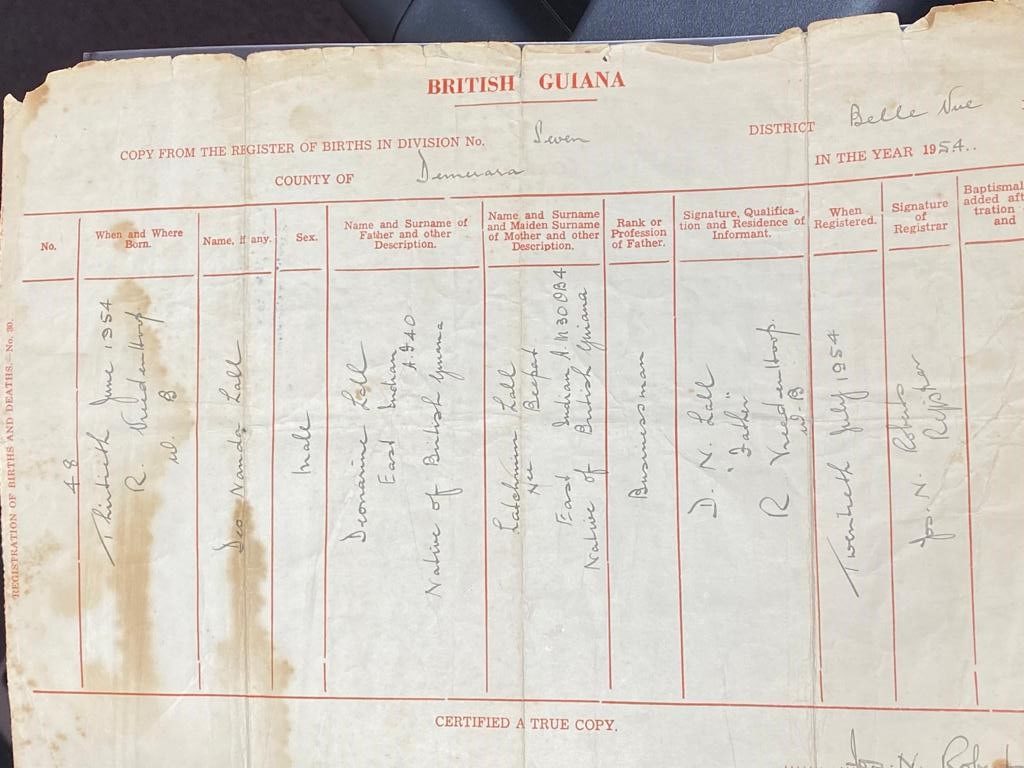 BRITISH GUIANA
COPY FROM THE REGISTER OF BIRTHS IN DIVISION No. Seven DISTRICT Belle Vue
COUNTY OF Demerara IN THE YEAR 1954..
REGISTRATION OF BIRTHS AND DEATHS.—No. 30.
No.
When and Where
Born.
Name, if any.
Sex.
Name and Surname of
Father and other
Description.
Name and Surname
and Maiden Surname
of Mother and other
Description.
Rank or
Profession
of Father.
Signature, Qualifica-
tion and Residence of
Informant.
When
Registered.
Signature
of
Registrar
Baptismal
added aft
tration
and
48
Thirtieth June 1954
R. Vreedenhoop
W. B
Deo Nanda Lall
Male
Deonarine Lall
East Indian
Native of British Guiana
Latchmin Lall
Nee Beepat
East Indian
Native of British Guiana
Businessman
D. N. Lall
"Father"
R Vreedenhoop.
W. B
Twentieth July 1954
Jos. N. Roberts
CERTIFIED A TRUE COPY.
Jos. N. Robe